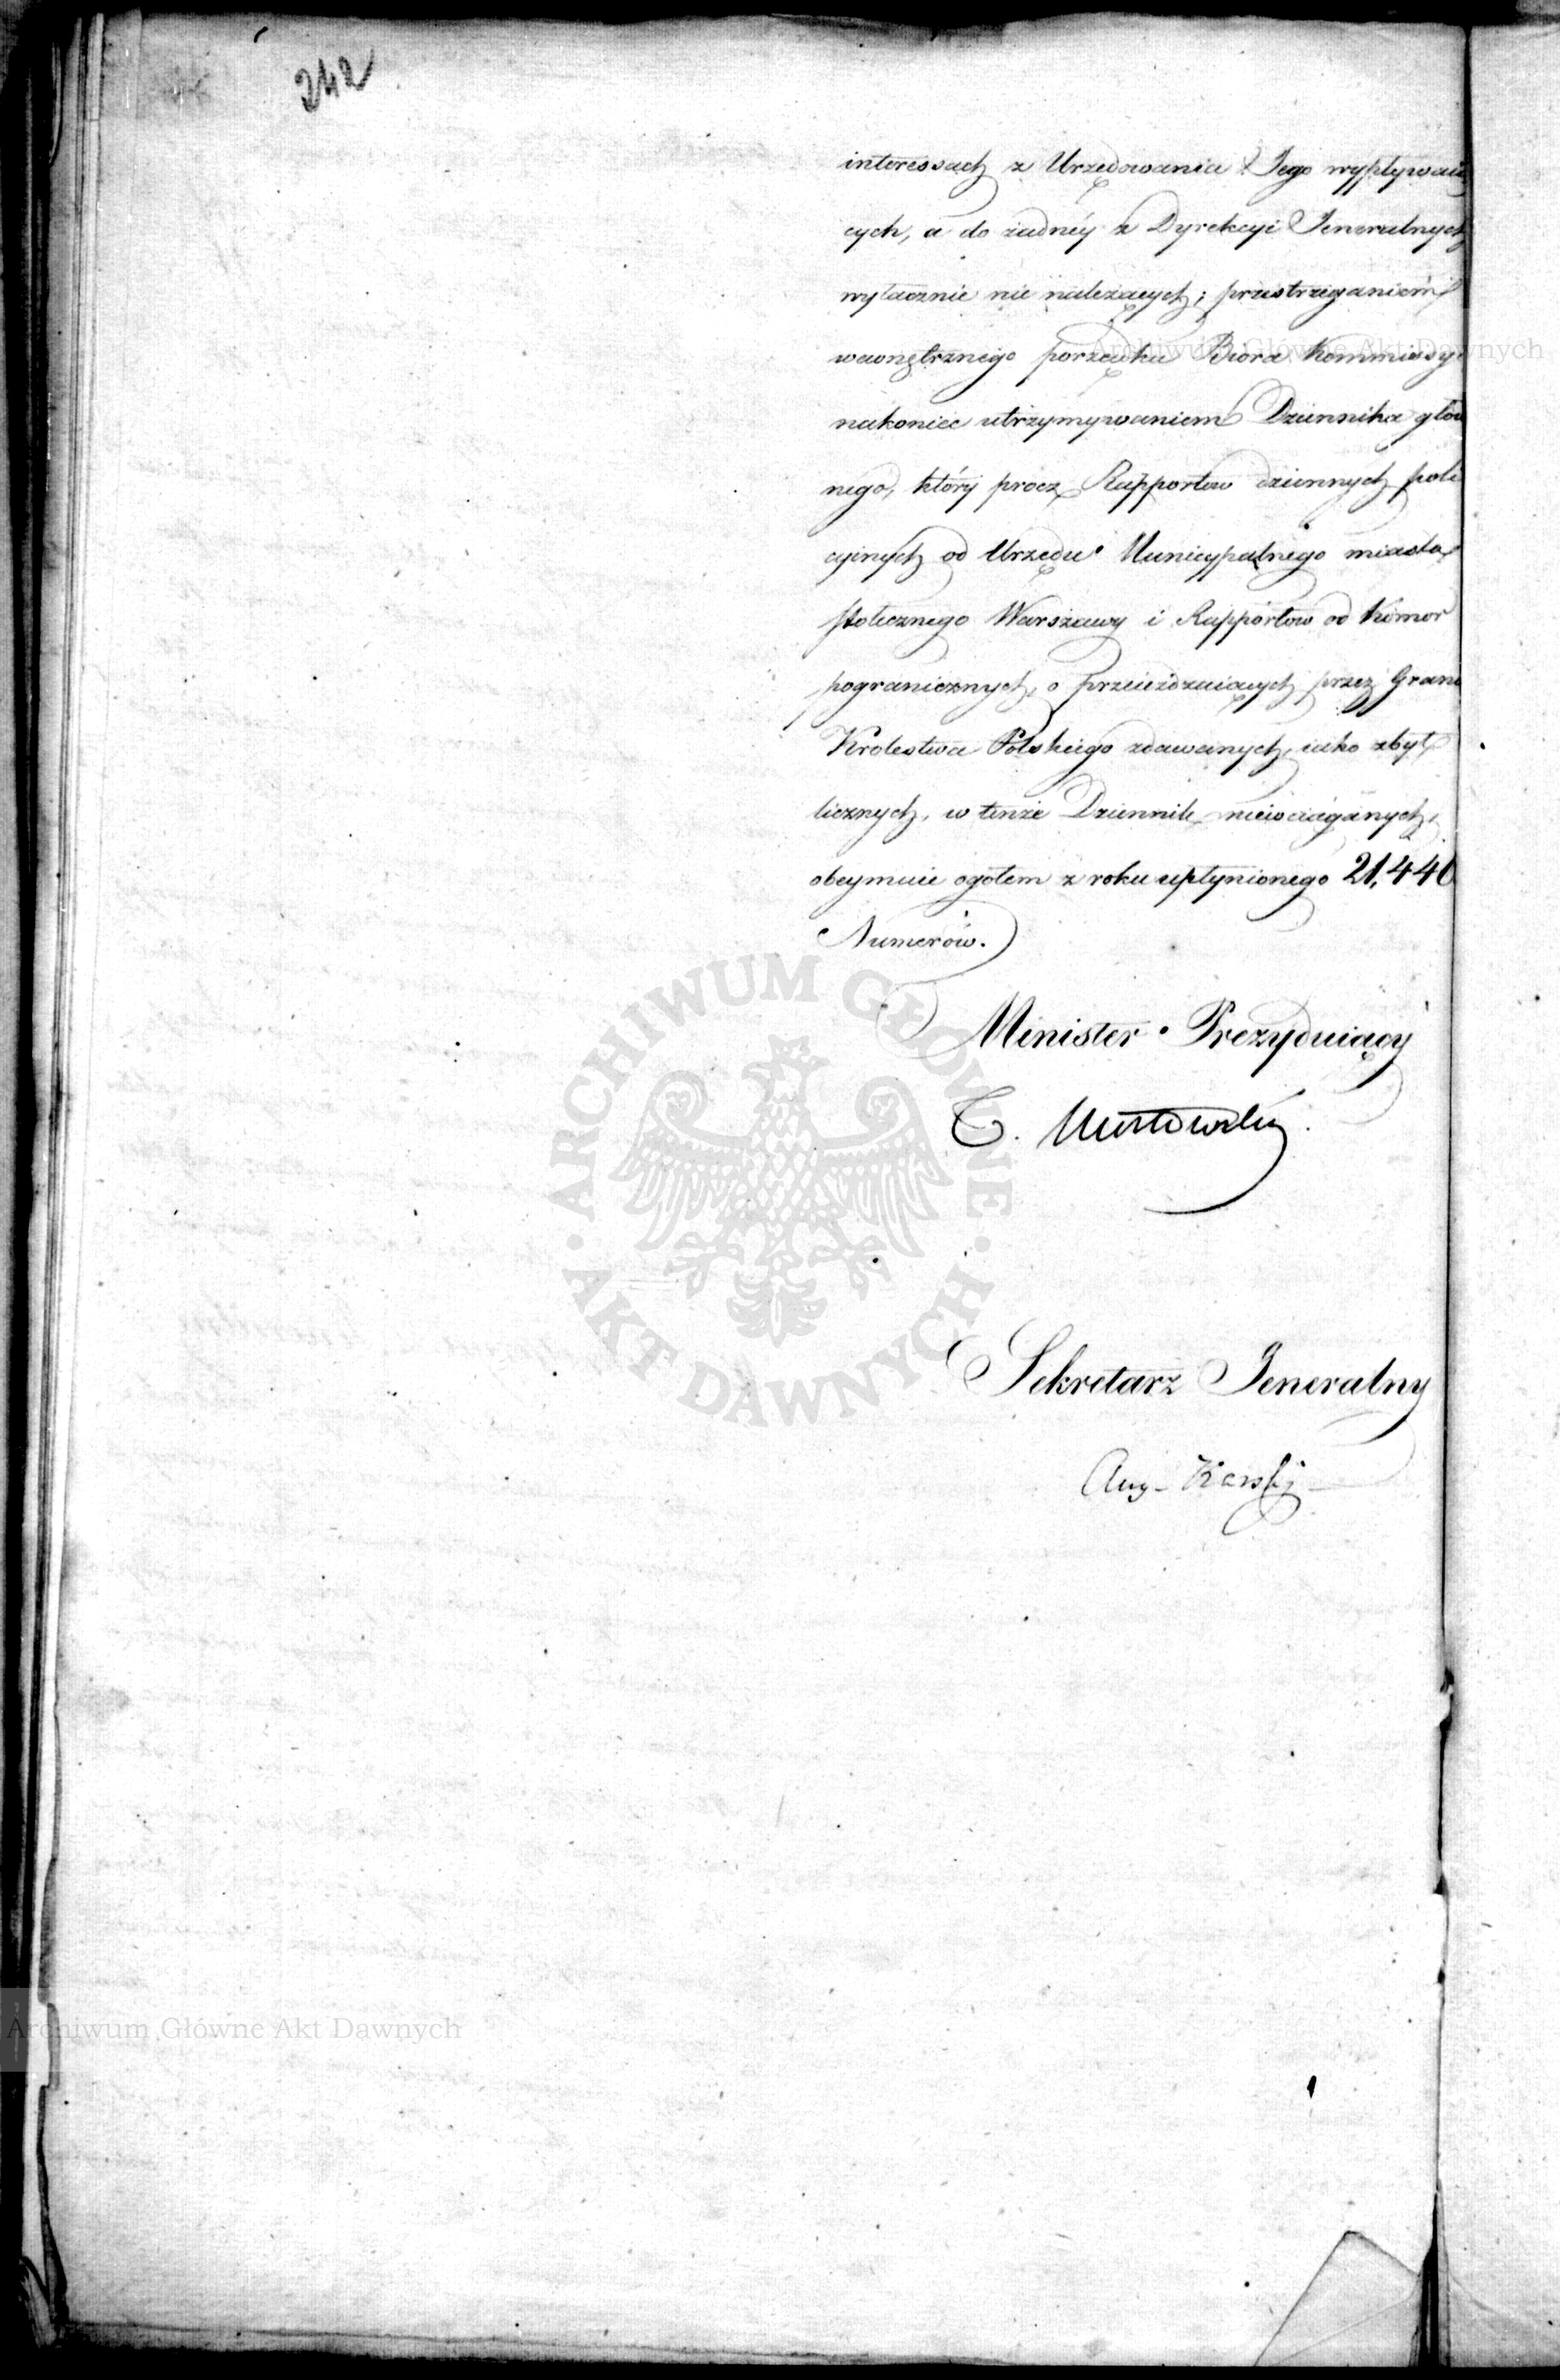 242
interessach z Urzędowania Jego wypływaią
cych, a do żadnéy z Dyrekcyi Jeneralnych
wyłącznie nie należących; przestrzeganiem
wewnętrznego porządku Biora Kommissyi
nakoniec utrzymywaniem Dziennika głów
nego, który procz Rapportow dziennych poli
cyinych od Urzędu Municypalnego miasta
stołecznego Warszawy i Rapportow od Komor
pogranicznych, o przeieżdzaiących przez Grani
Krolestwa Polskiego zdawanych, iako zbyt
licznych, w tenże Dziennik niewciąganych,
obeymuie ogołem z roku upłynionego 21,440
Numerów.
Minister Prezyduiący
T. Mostowski
Sekretarz Jeneralny
Aug. Karski
Archiwum Główne Akt Dawnych
ARCHIWUM GŁÓWNE AKT DAWNYCH
Archiwum Główne Akt Dawnych